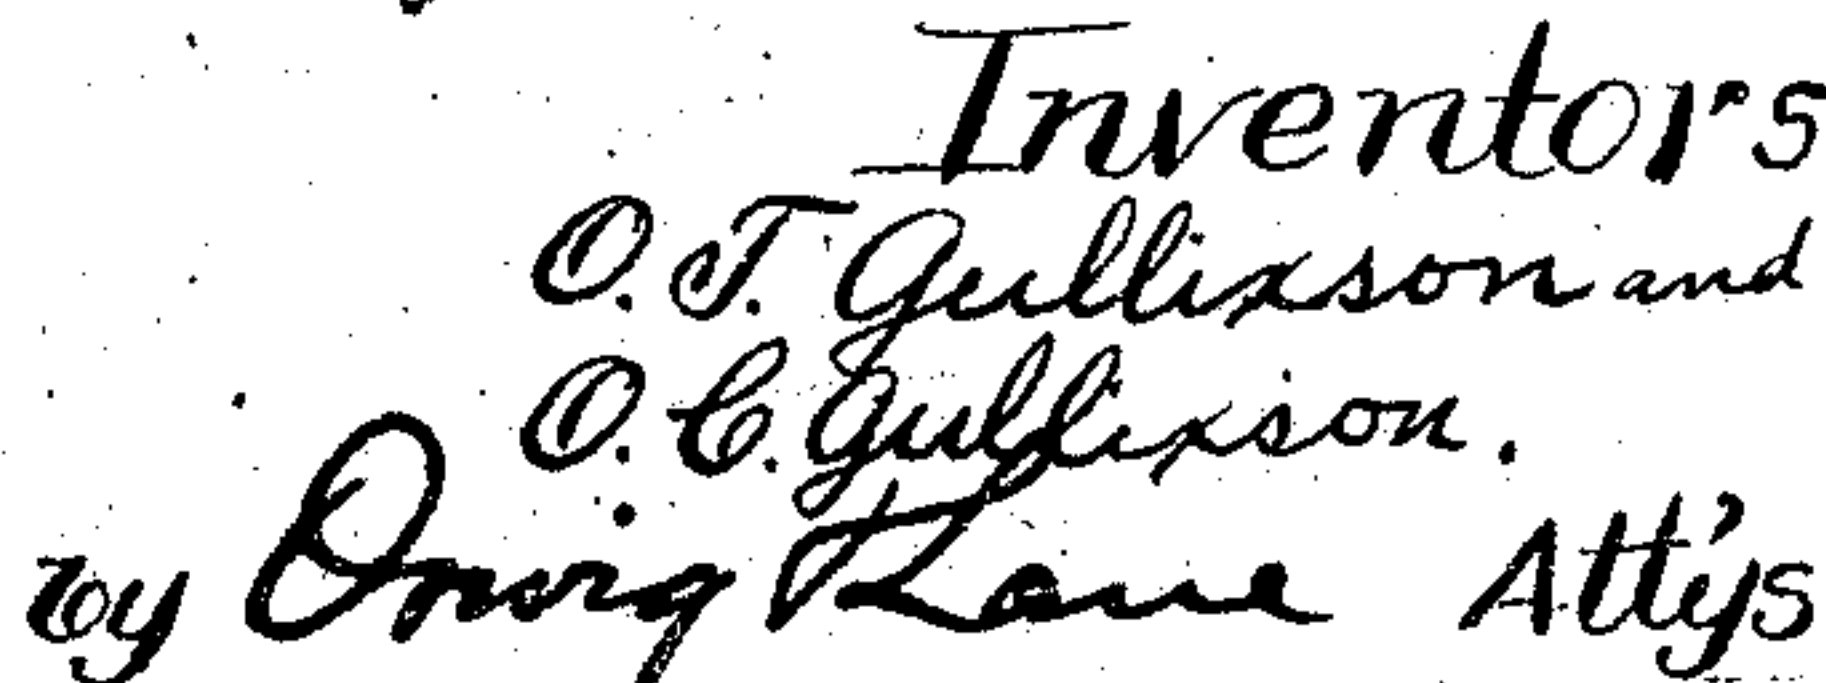 Inventors
O. T. Gullixson and
O. C. Gullixson.
by Orwig & Lane Att'ys